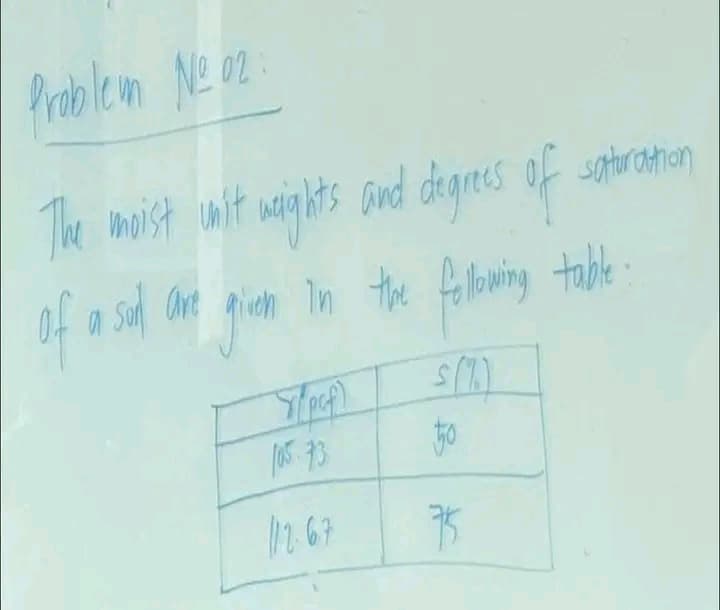 Problem Nº 02:
The moist unit weights and degrees of saturation
of a soil are given in the following table:
γ(pcf) S(%)
105.73 50
112.67 75